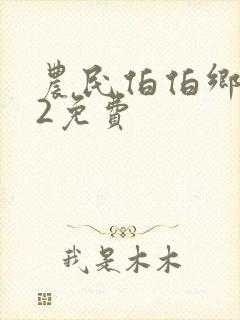 農民伯伯鄉
2免費
我是木木